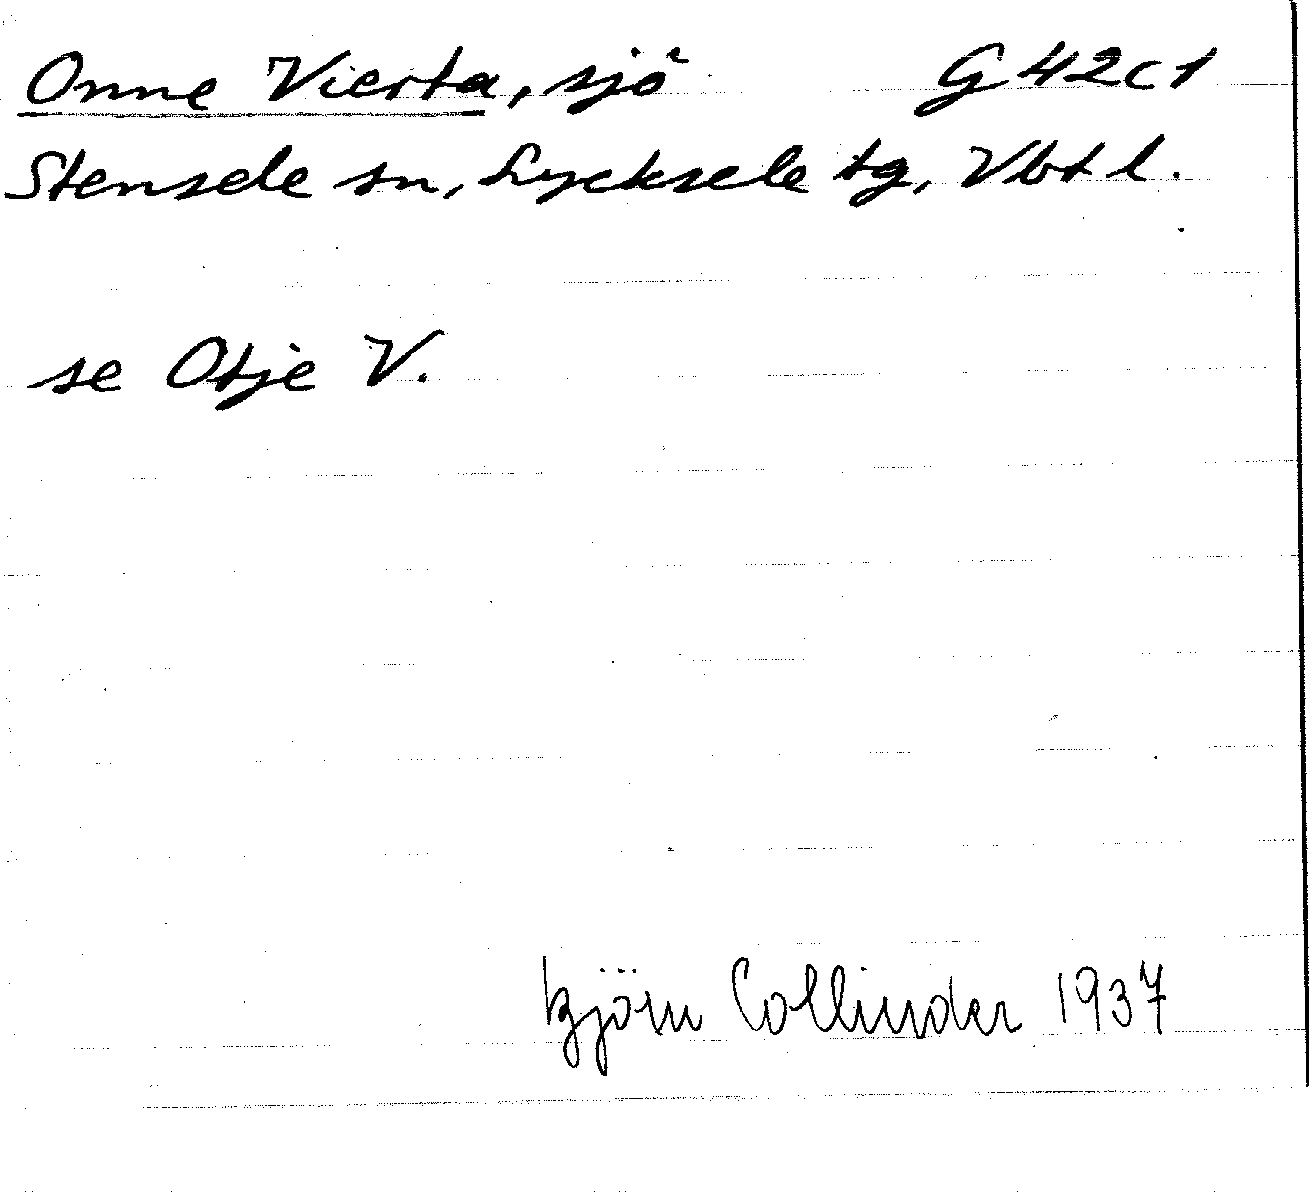 Onne Vierta, sjö G 42 c 1
Stensele sn, Lycksele tg, Vbtl.
se Otje V.
Björn Collinder 1937